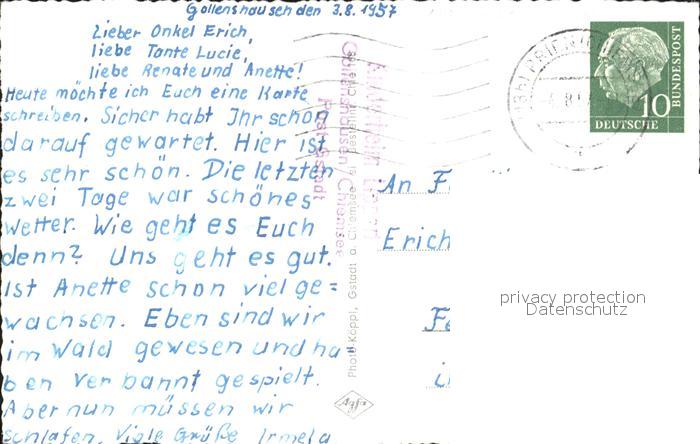 Gollenshausen den 3.8.1957
Lieber Onkel Erich,
liebe Tante Lucie,
liebe Renate und Anette!
Heute möchte ich Euch eine Karte
schreiben. Sicher habt Ihr schon
darauf gewartet. Hier ist
es sehr schön. Die letzten
zwei Tage war schönes
Wetter. Wie geht es Euch
denn? Uns geht es gut.
Ist Anette schon viel ge=
wachsen. Eben sind wir
im Wald gewesen und ha
ben Verbannt gespielt.
Aber nun müssen wir
schlafen. Viele Grüße Irmela
Photo Köppl, Gstadt a. Chiemsee
Gollenshausen/Chiemsee
Post Gstadt
Agfa
10
DEUTSCHE
BUNDESPOST
An F
Erich
privacy protection
Datenschutz